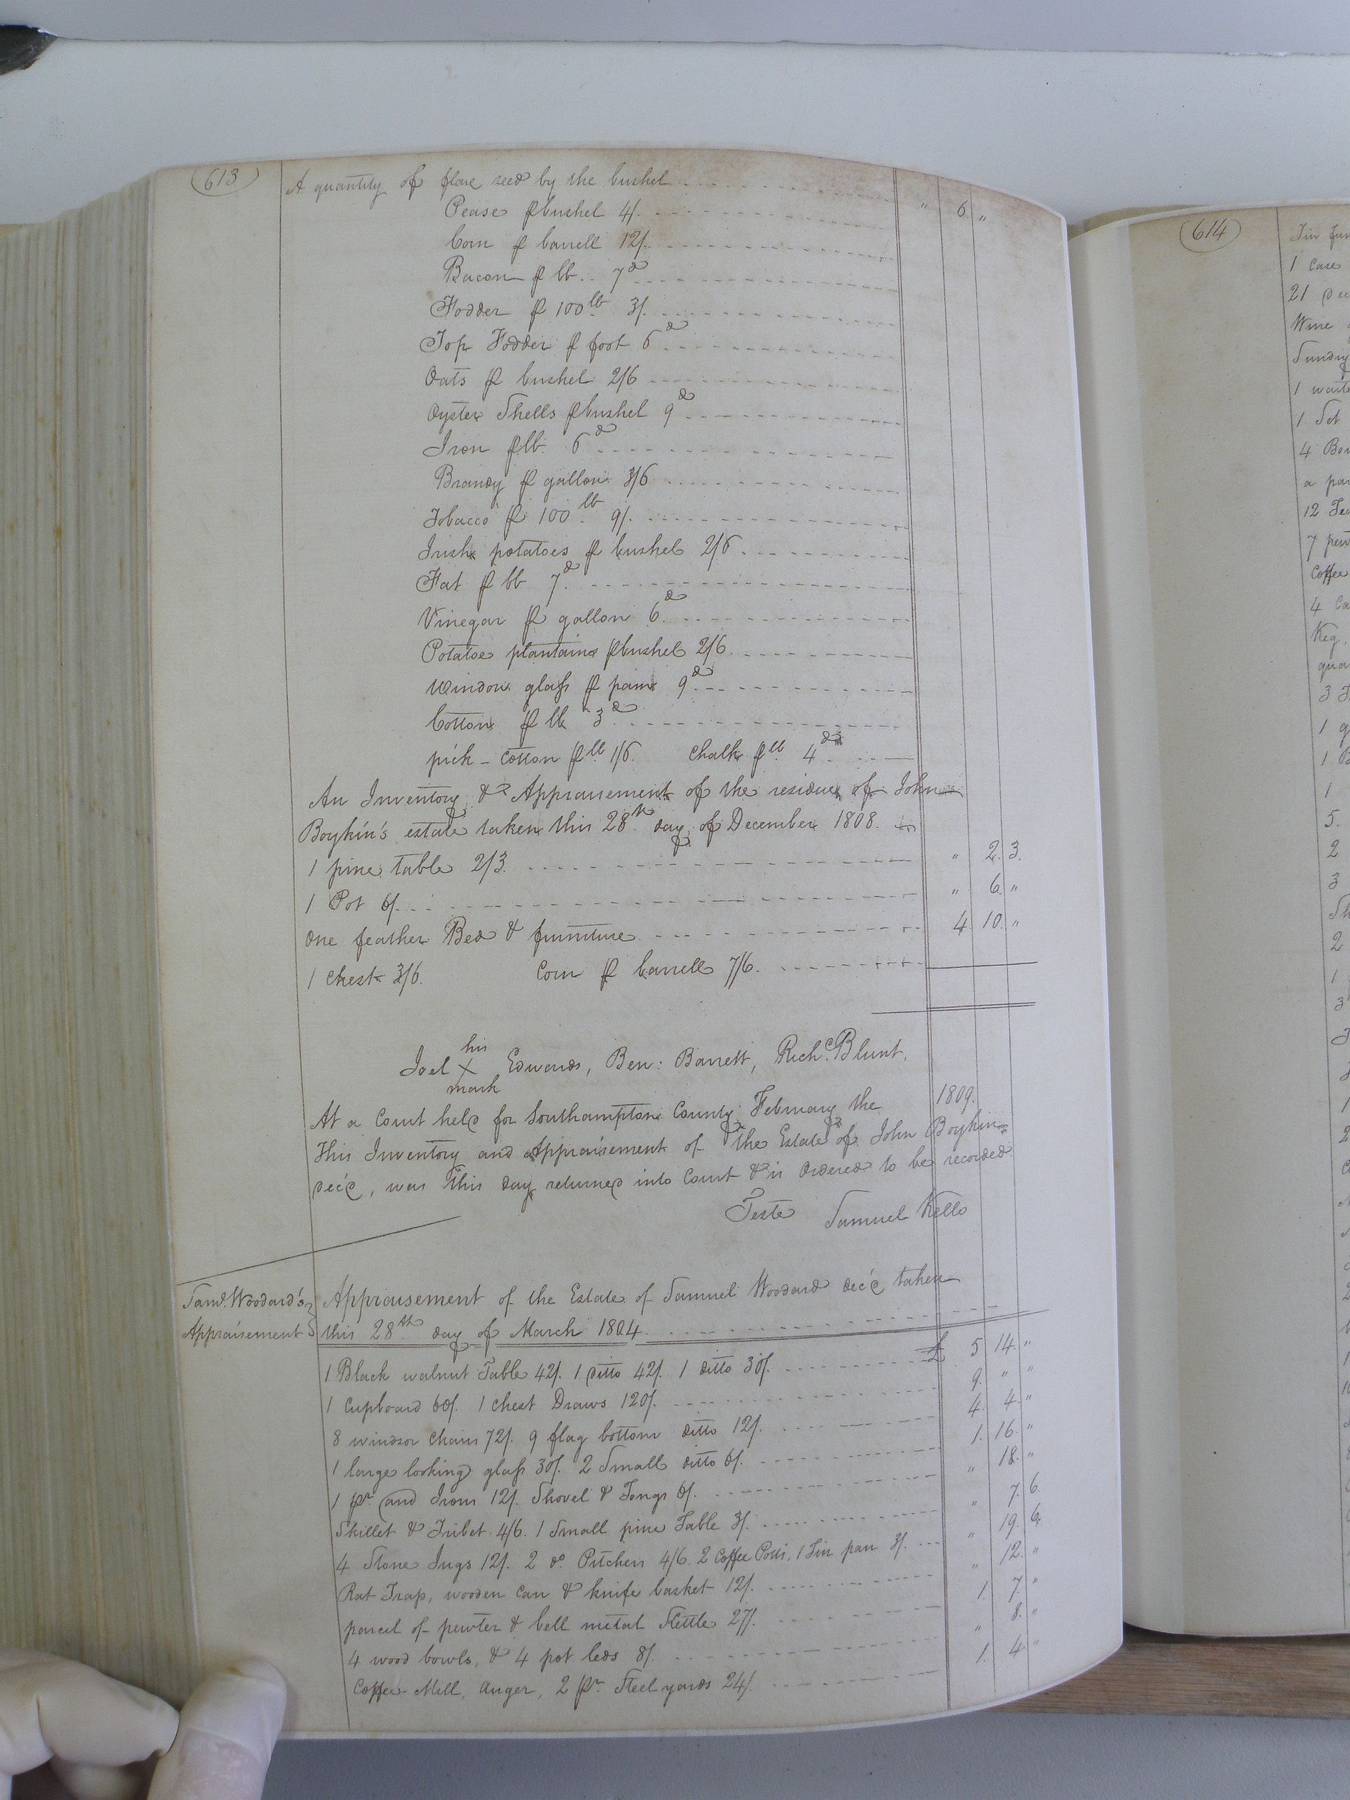 613
A quantity of flax seed by the bushel " 6 "
Pease ⅌ bushel 4/.
Corn ⅌ barrell 12/.
Bacon ⅌ lb. 7d
Fodder ⅌ 100 lb 3/.
Top Fodder ⅌ foot 6d
Oats ⅌ bushel 2/6
Oyster Shells ⅌ bushel 9d
Iron ⅌ lb. 6d
Brandy ⅌ gallon 3/6
Tobacco ⅌ 100 lb 9/.
Irish potatoes ⅌ bushel 2/6
Fat ⅌ lb 7d
Vinegar ⅌ gallon 6d
Potatoe plantains ⅌ bushel 2/6
Window glass ⅌ pain 9d
Cotton ⅌ lb 3d
pick-cotton ⅌ lb 1/6 Chalk ⅌ lb 4d
An Inventory & Appraisement of the residue of John
Boykin's estate taken this 28th day of December 1808.
1 pine table 2/3. " 2. 3.
1 Pot 6/. " 6 "
One feather Bed & furniture 4 10 "
1 Chest 3/6. Corn ⅌ barrell 7/6.
his
Joel X Edwards, Ben: Barrett, Richd. Blunt.
mark
At a Court held for Southampton County February the 1809.
This Inventory and Appraisement of the Estate of John Boykin
dec'd, was this day returned into Court & is Ordered to be recorded
Teste Samuel Kello
Saml. Woodard's
Appraisement
Appraisement of the Estate of Samuel Woodard dec'd taken
this 28th day of March 1804.
1 Black walnut Table 42/. 1 ditto 42/. 1 ditto 30/. £ 5 14 "
1 Cupboard 60/. 1 Chest Draws 120/. 9. " "
8 windsor chairs 72/. 9 flag bottom ditto 12/. 4. 4. "
1 large looking glass 30/. 2 Small ditto 6/. 1. 16. "
1 pr and Irons 12/. Shovel & Tongs 6/. " 18. "
Skillet & Tribet 4/6. 1 Small pine Table 3/. " 7. 6.
4 Stone Jugs 12/. 2 do. Pitchers 4/6. 2 Coffee Potts, 1 Tin pan 3/. " 19. 6.
Rat Trap, wooden can & knife basket 12/. " 12. "
parcel of pewter & bell metal Kettle 27/. 1. 7. "
4 wood bowls, & 4 pot leds 8/. " 8. "
Coffee-Mill, Auger, 2 pr. Steelyards 24/. 1. 4 "
614
1 Case
21
Wine
Sundry
1
1 Set
4
a
12
7
Coffee
4
Keg
3
1
1
1
5.
2
3
2
1
3